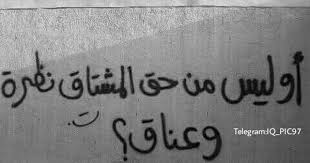 أوليس من حق المشتاق نظرة
وعناق؟
Telegram:IQ_PIC97